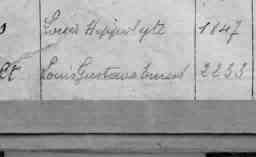 Louis Hippolyte 1847
Louis Gustave Ernest 2233